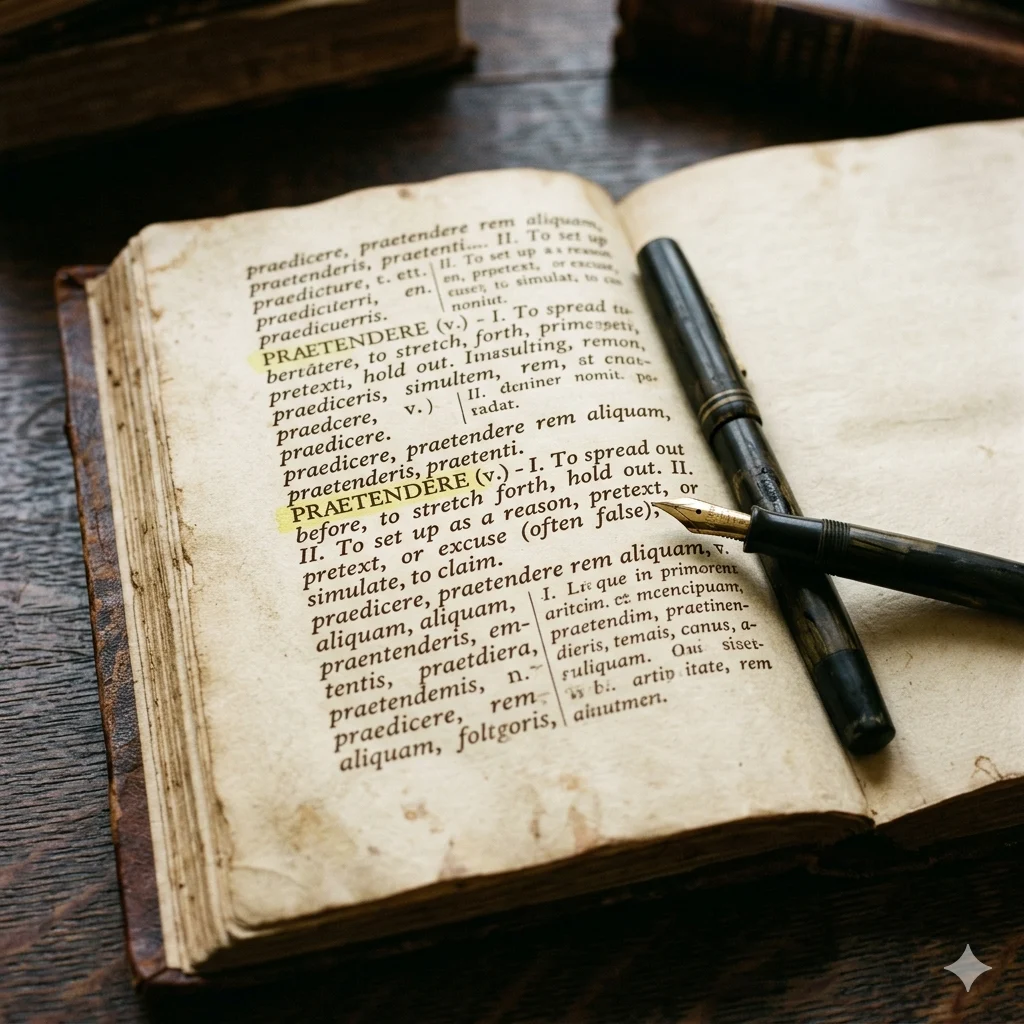 praedicere, praetendere rem aliquam,
praetenderis, praetenti.... II. To set up
praedicture, c. ett.
praediciterri, en.
praedicuerris.
II. To set up as a reason
en, prpetext, or excuse,
to simulat, to can
noniut.
PRAETENDERE (v.) – I. To spread
bertātere, to stretch, forth,
pretexti, hold out. Imasulting, remon,
praediceris, simultem, rem, st cnat-
praedcere, v.)
praedicere.
II. dcniner nomit. pe-
radat.
praedicere, praetendere rem aliquam,
praetenderis, praetenti.
PRAETENDERE (v.) – I. To spread out
before, to stretch forth, hold out. II.
II. To set up as a reason, pretext, or
pretext, or excuse (often false),
simulate, to claim.
praedicere, praetendere rem aliquam, v.
aliquam, aliquam,
praentenderis, em-
tentis, praetdiera,
praetendemis, n.-
praedicere, rem
aliquam, foltgoris,
I. que in primorent
aritcim. mcencipuam,
praetendim, praetinen-
dieris, temais, canus, a-
suliquam. siset-
artip itate, rem
ainutmen.